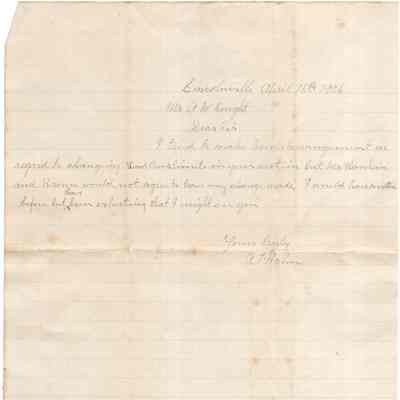 Lincolnville April 16th 1906
Mr A W Knight
Dear Sir
I tried to make some arrangement in
regard to changing in your section but Mr
and Brown would not agree to have any change made, I would have written
before but have been expecting that I might see you
Yours truly